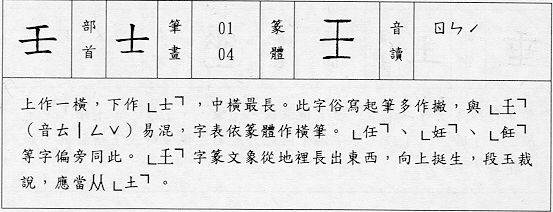 壬 部首 士 筆畫 01 04 篆體 壬 音讀 ㄖㄣˊ
上作一橫,下作「士」,中橫最長。此字俗寫起筆多作撇,與「𡈼」
(音ㄊㄧㄥˇ)易混,字表依篆體作橫筆。「任」、「妊」、「飪」
等字偏旁同此。「𡈼」字篆文象從地裡長出東西,向上挺生,段玉裁
說,應當从「土」。